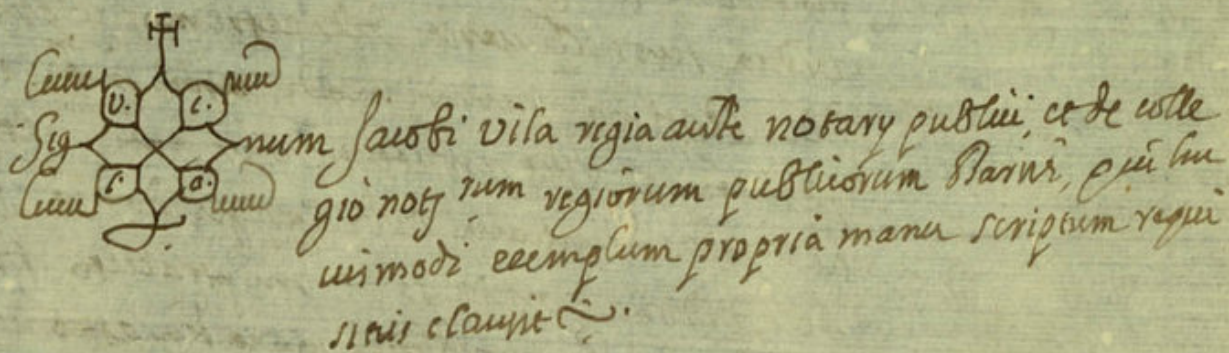 Sig num Jacobi vila regia aucte notary publici, et de colle
gio notz rum regiorum publicorum Barne, qui hu
iusmodi exemplum propria manu scriptum requi
situs clausit &.
V. I.
L. A.